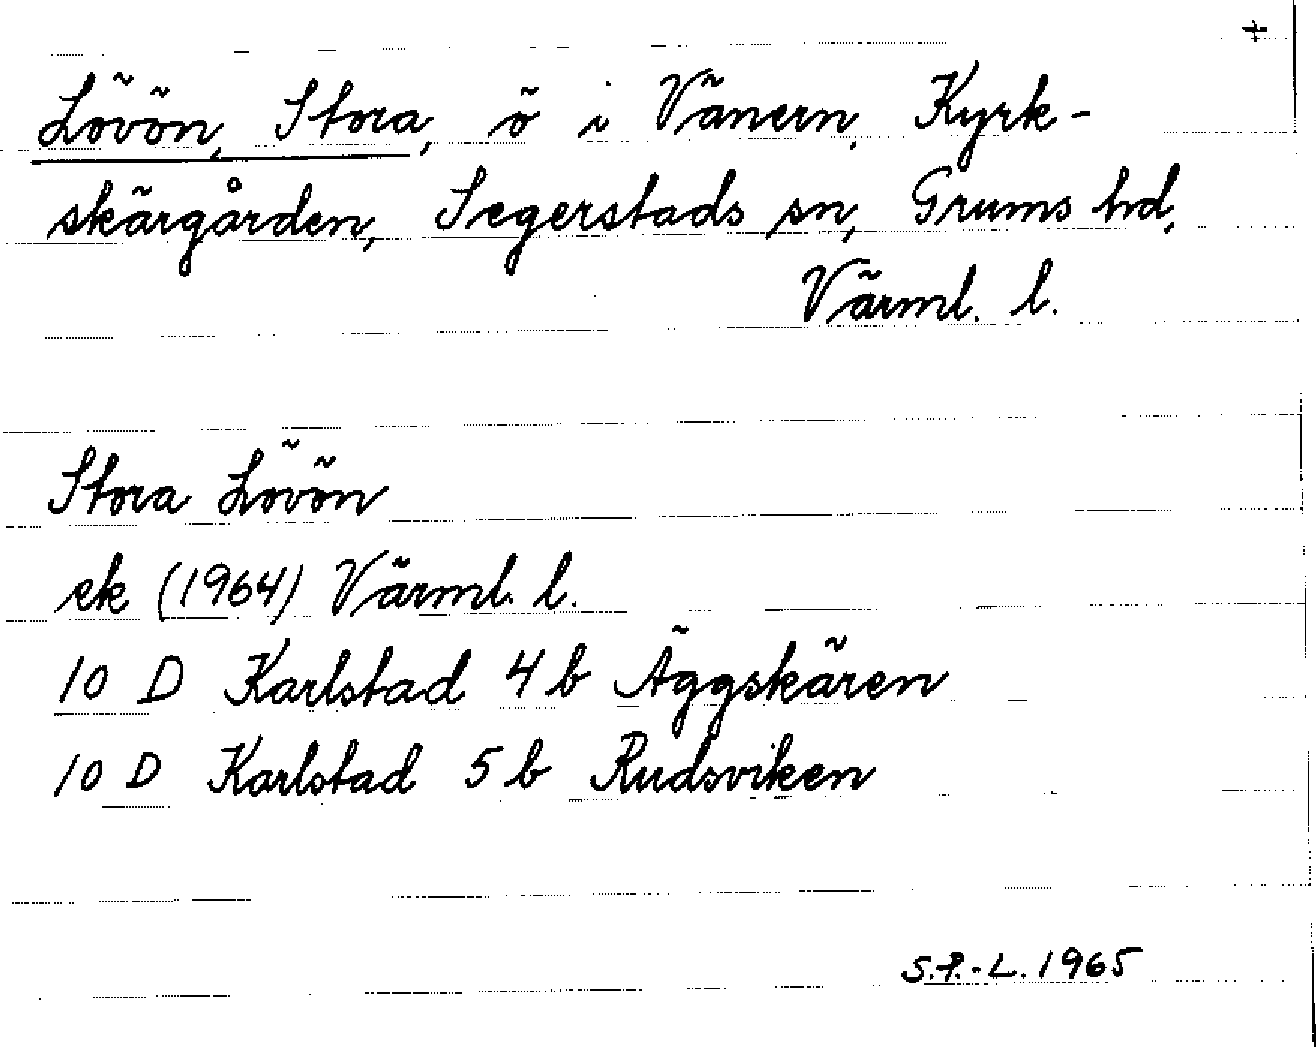 Lövön, Stora, ö i Vänern, Kyrk-
skärgården, Segerstads sn, Grums hd,
Värml. l.
Stora Lövön
ek (1964) Värml. l.
10 D Karlstad 4 b Äggskären
10 D Karlstad 5 b Rudsviken
S.P.-L. 1965